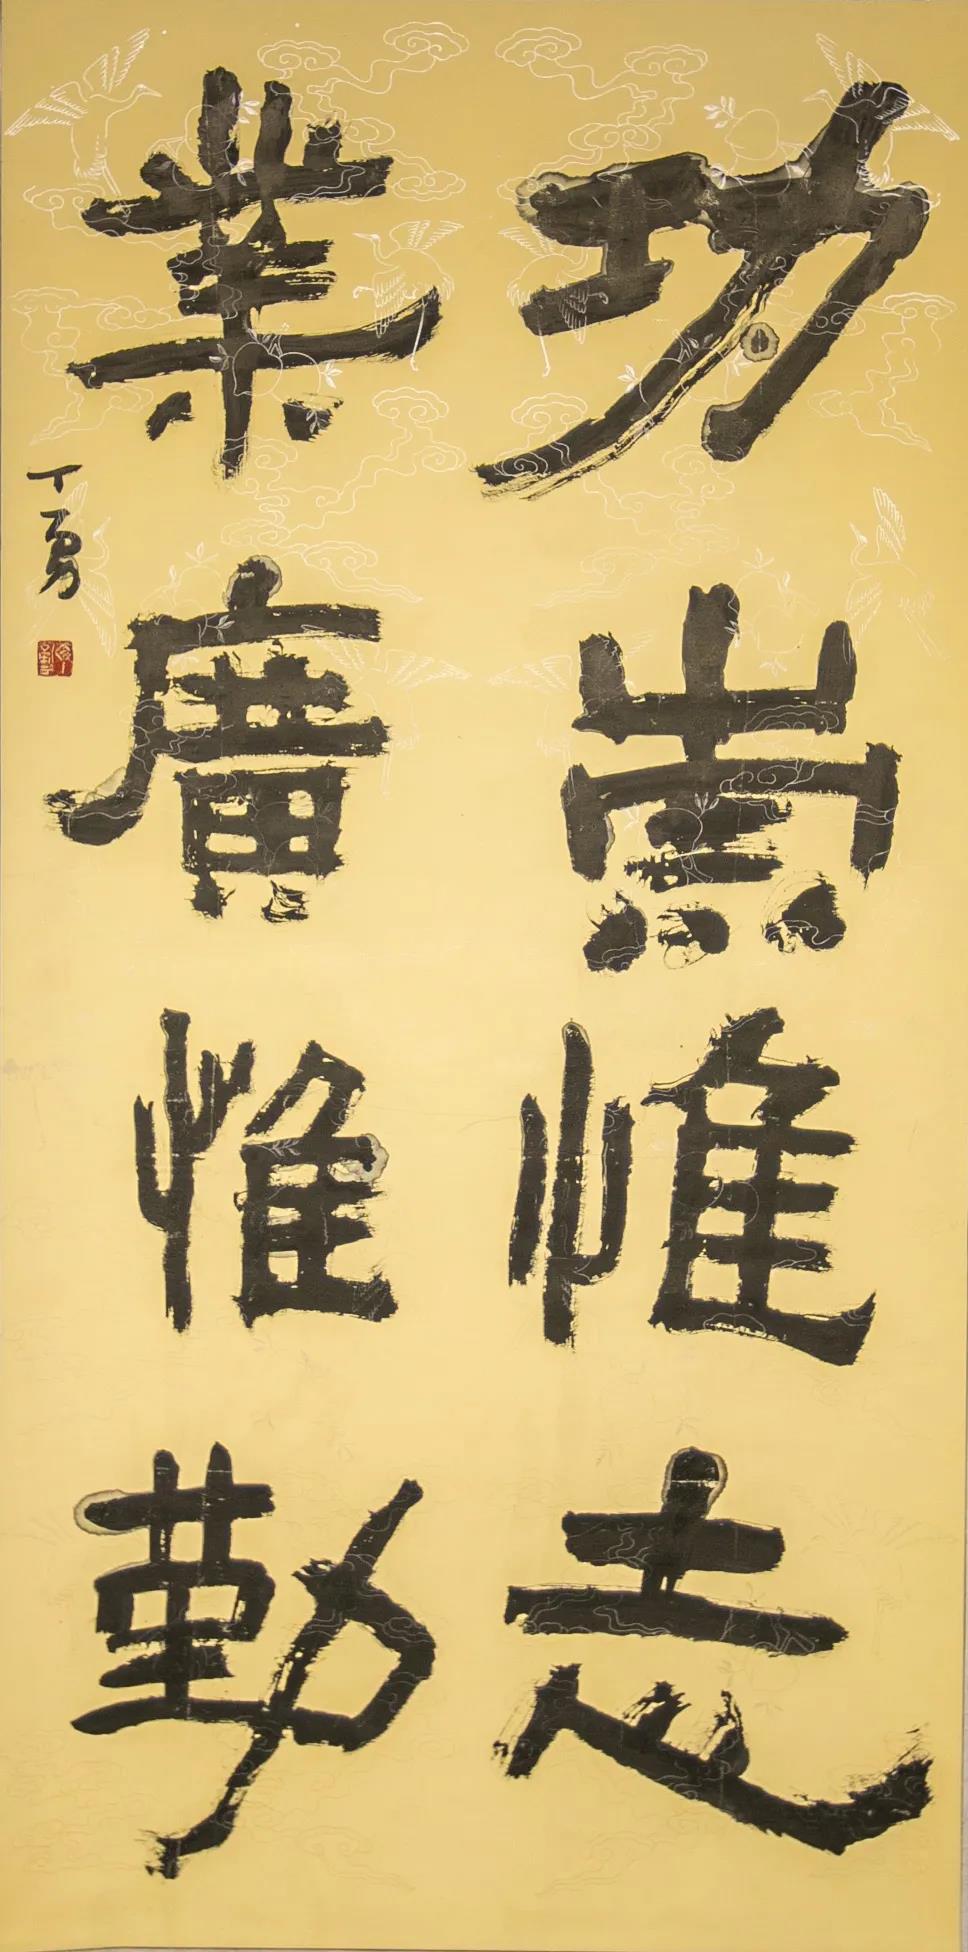 功崇惟志
業廣惟勤
丁勇